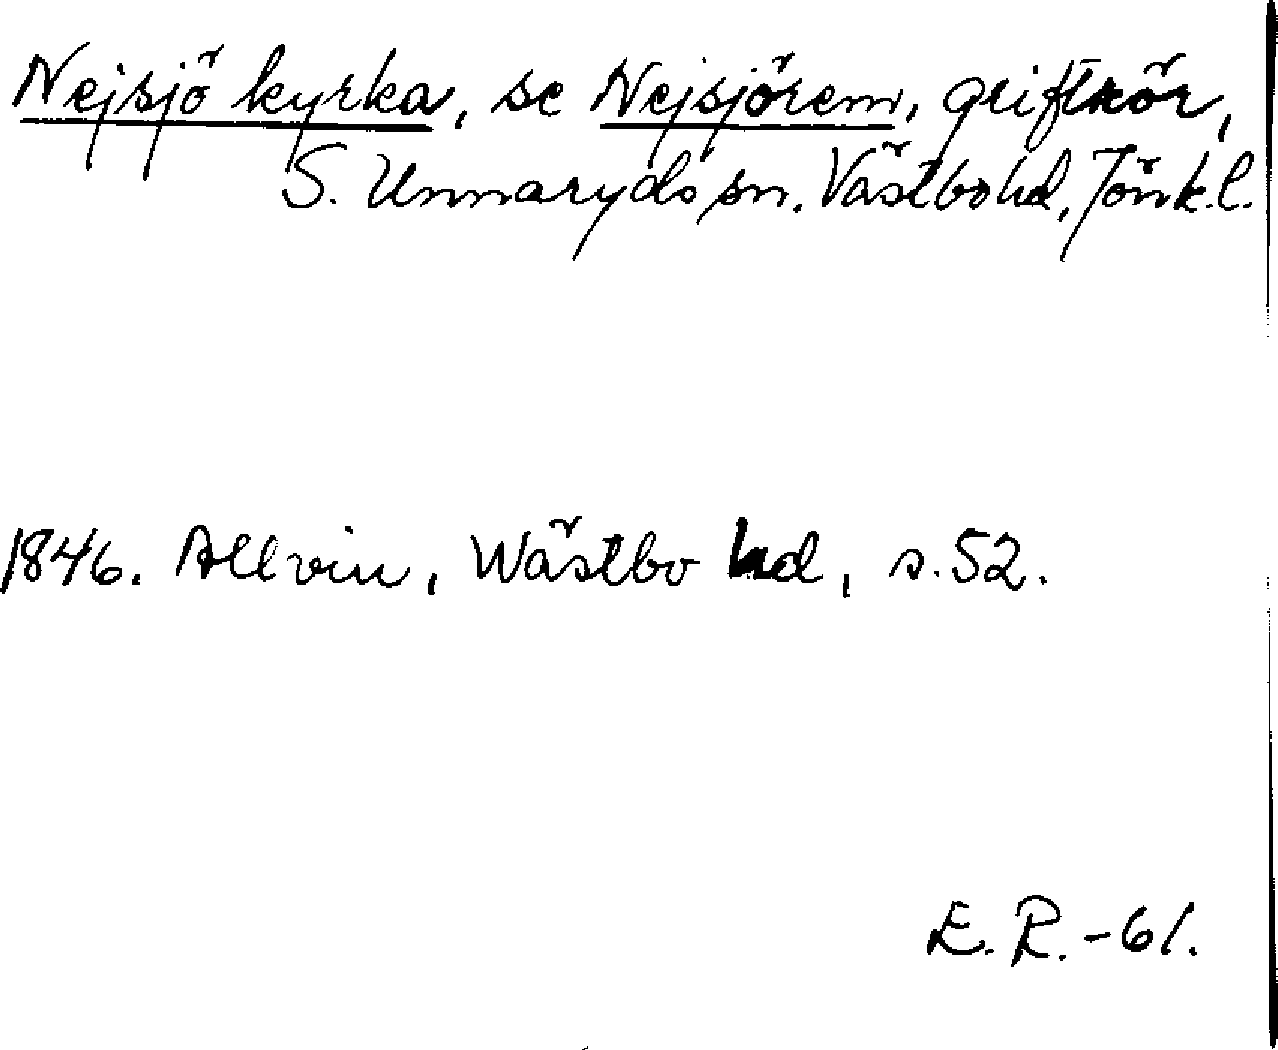 Nejsjö kyrka, se Nejsjörem, griftrör,
S. Unnaryds sn. Västbo hd, Jönk.l.
1846. Allvin, Wästbo hd, s. 52.
E. R. -61.